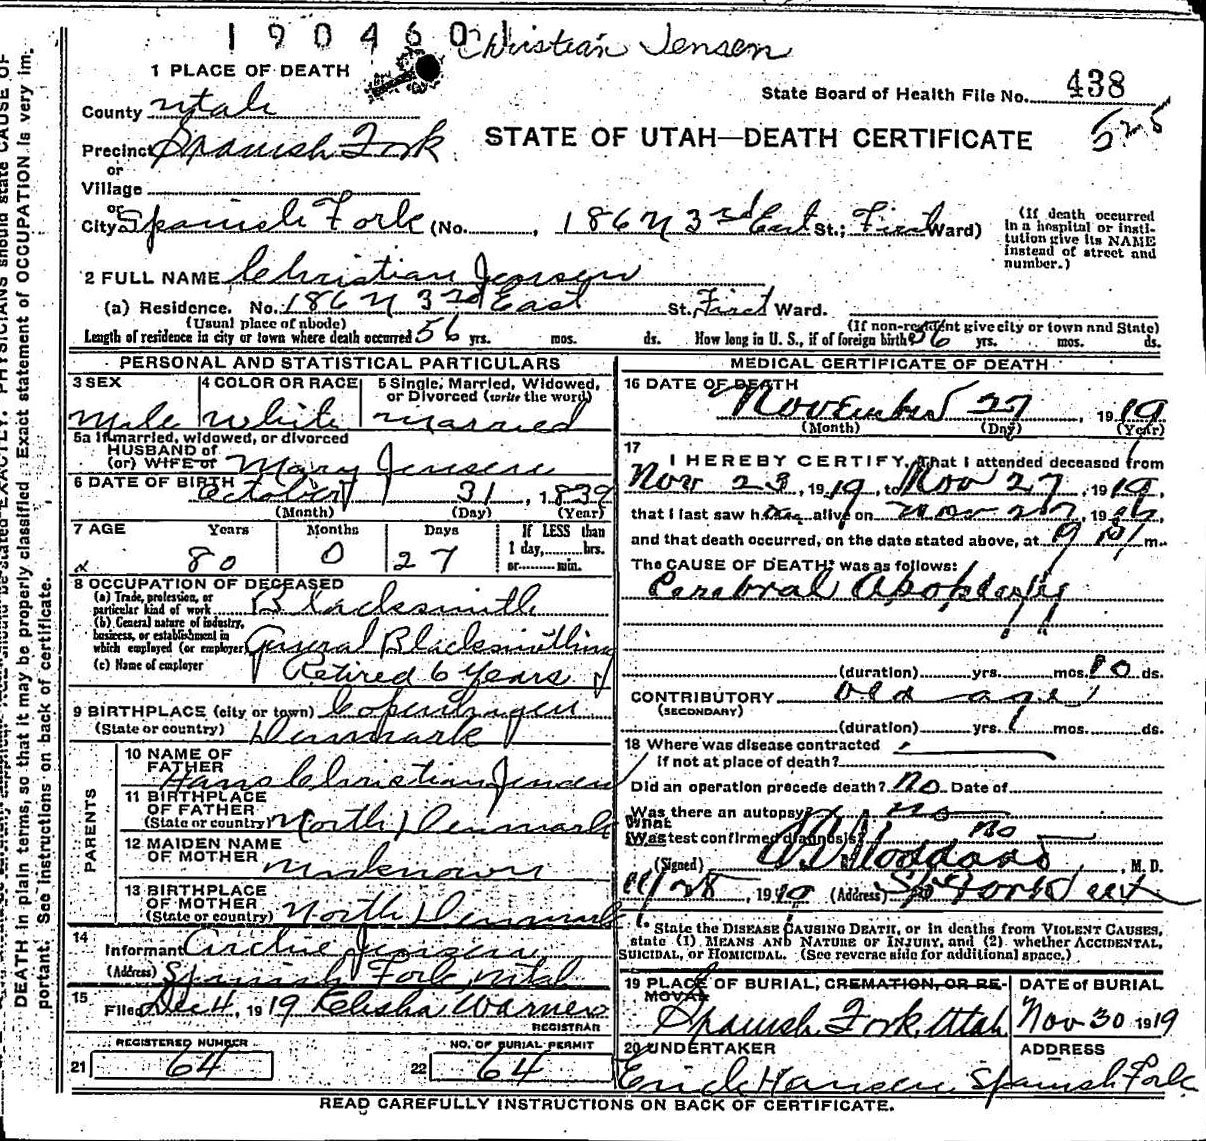 190460
Christian Jensen
1 PLACE OF DEATH
State Board of Health File No. 438
County Utah
525
STATE OF UTAH—DEATH CERTIFICATE
Precinct Spanish Fork
or
Village
or
City Spanish Fork (No. , 186 N 3rd East St.; First Ward)
(If death occurred in a hospital or institution give its NAME instead of street and number.)
2 FULL NAME Christian Jensen
(a) Residence. No. 186 N 3rd East St. First Ward.
(Usual place of abode) (If non-resident give city or town and State)
Length of residence in city or town where death occurred 56 yrs. mos. ds. How long in U. S., if of foreign birth 56 yrs. mos. ds.
PERSONAL AND STATISTICAL PARTICULARS
3 SEX 4 COLOR OR RACE 5 Single, Married, Widowed, or Divorced (write the word)
Male White Married
5a If married, widowed, or divorced
HUSBAND of
(or) WIFE of Mary Jensen
6 DATE OF BIRTH October 31, 1839
(Month) (Day) (Year)
7 AGE Years Months Days If LESS than
80 0 27 1 day, hrs.
or min.
8 OCCUPATION OF DECEASED
(a) Trade, profession, or particular kind of work Blacksmith
(b) General nature of industry, business, or establishment in which employed (or employer) General Blacksmithing
(c) Name of employer Retired 6 Years
9 BIRTHPLACE (city or town) Copenhagen
(State or country) Denmark
PARENTS
10 NAME OF FATHER Hans Christian Jensen
11 BIRTHPLACE OF FATHER (State or country) North Denmark
12 MAIDEN NAME OF MOTHER Unknown
13 BIRTHPLACE OF MOTHER (State or country) North Denmark
14 Informant Archie Jensen
(Address) Spanish Fork Utah
15 Filed Dec 4, 1919 Elisha Warner
REGISTRAR
REGISTERED NUMBER NO. OF BURIAL PERMIT
21 64 22 64
MEDICAL CERTIFICATE OF DEATH
16 DATE OF DEATH
November 27, 1919
(Month) (Day) (Year)
17
I HEREBY CERTIFY, That I attended deceased from
Nov 23, 1919, to Nov 27, 1919,
that I last saw him alive on Nov 27, 19
and that death occurred, on the date stated above, at 9 P m.
The CAUSE OF DEATH* was as follows:
Cerebral Apoplexy
(duration) yrs. mos. 10 ds.
CONTRIBUTORY old age
(SECONDARY)
(duration) yrs. mos. ds.
18 Where was disease contracted
if not at place of death?
Did an operation precede death? no Date of
Was there an autopsy? no
What
Was test confirmed diagnosis? no
(Signed) Stoddard, M. D.
11/28, 1919 (Address) Sp Fork Utah
* State the DISEASE CAUSING DEATH, or in deaths from VIOLENT CAUSES,
state (1) MEANS AND NATURE OF INJURY, and (2) whether ACCIDENTAL,
SUICIDAL, or HOMICIDAL. (See reverse side for additional space.)
19 PLACE OF BURIAL, CREMATION, OR REMOVAL DATE of BURIAL
Spanish Fork, Utah Nov 30 1919
20 UNDERTAKER ADDRESS
Erick Hansen Spanish Fork
READ CAREFULLY INSTRUCTIONS ON BACK OF CERTIFICATE.
PHYSICIANS should state CAUSE OF
DEATH in plain terms, so that it may be properly classified. Exact statement of OCCUPATION is very im-
portant. See instructions on back of certificate.